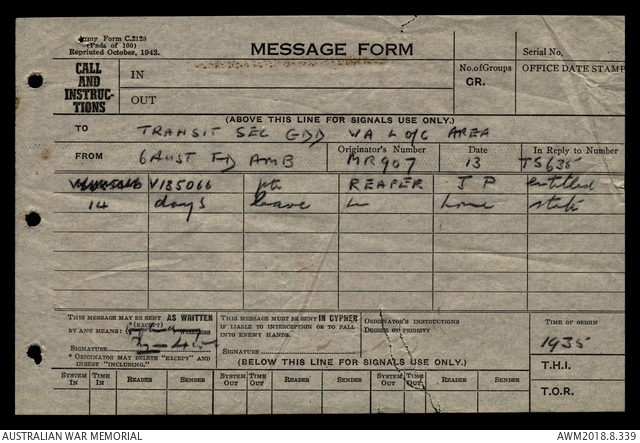 Army Form C.2128
(Pads of 100)
Reprinted October, 1942.
MESSAGE FORM
Serial No.
CALL AND INSTRUC-TIONS
IN
OUT
No. of Groups
GR.
OFFICE DATE STAMP
(ABOVE THIS LINE FOR SIGNALS USE ONLY.)
TO TRANSIT SEC GDD WA L of C AREA
FROM 6 AUST FD AMB
Originator's Number MR907
Date 13
In Reply to Number TS635
V185066 pte REAPER J P entitled
14 days leave in home state
THIS MESSAGE MAY BE SENT AS WRITTEN
*(EXCEPT)
BY ANY MEANS: WIRELESS
SIGNATURE
* ORIGINATOR MAY DELETE "EXCEPT" AND INSERT "INCLUDING."
THIS MESSAGE MUST BE SENT IN CYPHER
IF LIABLE TO INTERCEPTION OR TO FALL INTO ENEMY HANDS.
SIGNATURE
ORIGINATOR'S INSTRUCTIONS
DEGREE OF PRIORITY
TIME OF ORIGIN
1935
T.H.I.
T.O.R.
(BELOW THIS LINE FOR SIGNALS USE ONLY.)
SYSTEM IN TIME IN READER SENDER SYSTEM OUT TIME OUT READER SENDER SYSTEM OUT TIME OUT READER SENDER
AUSTRALIAN WAR MEMORIAL
AWM2018.8.339